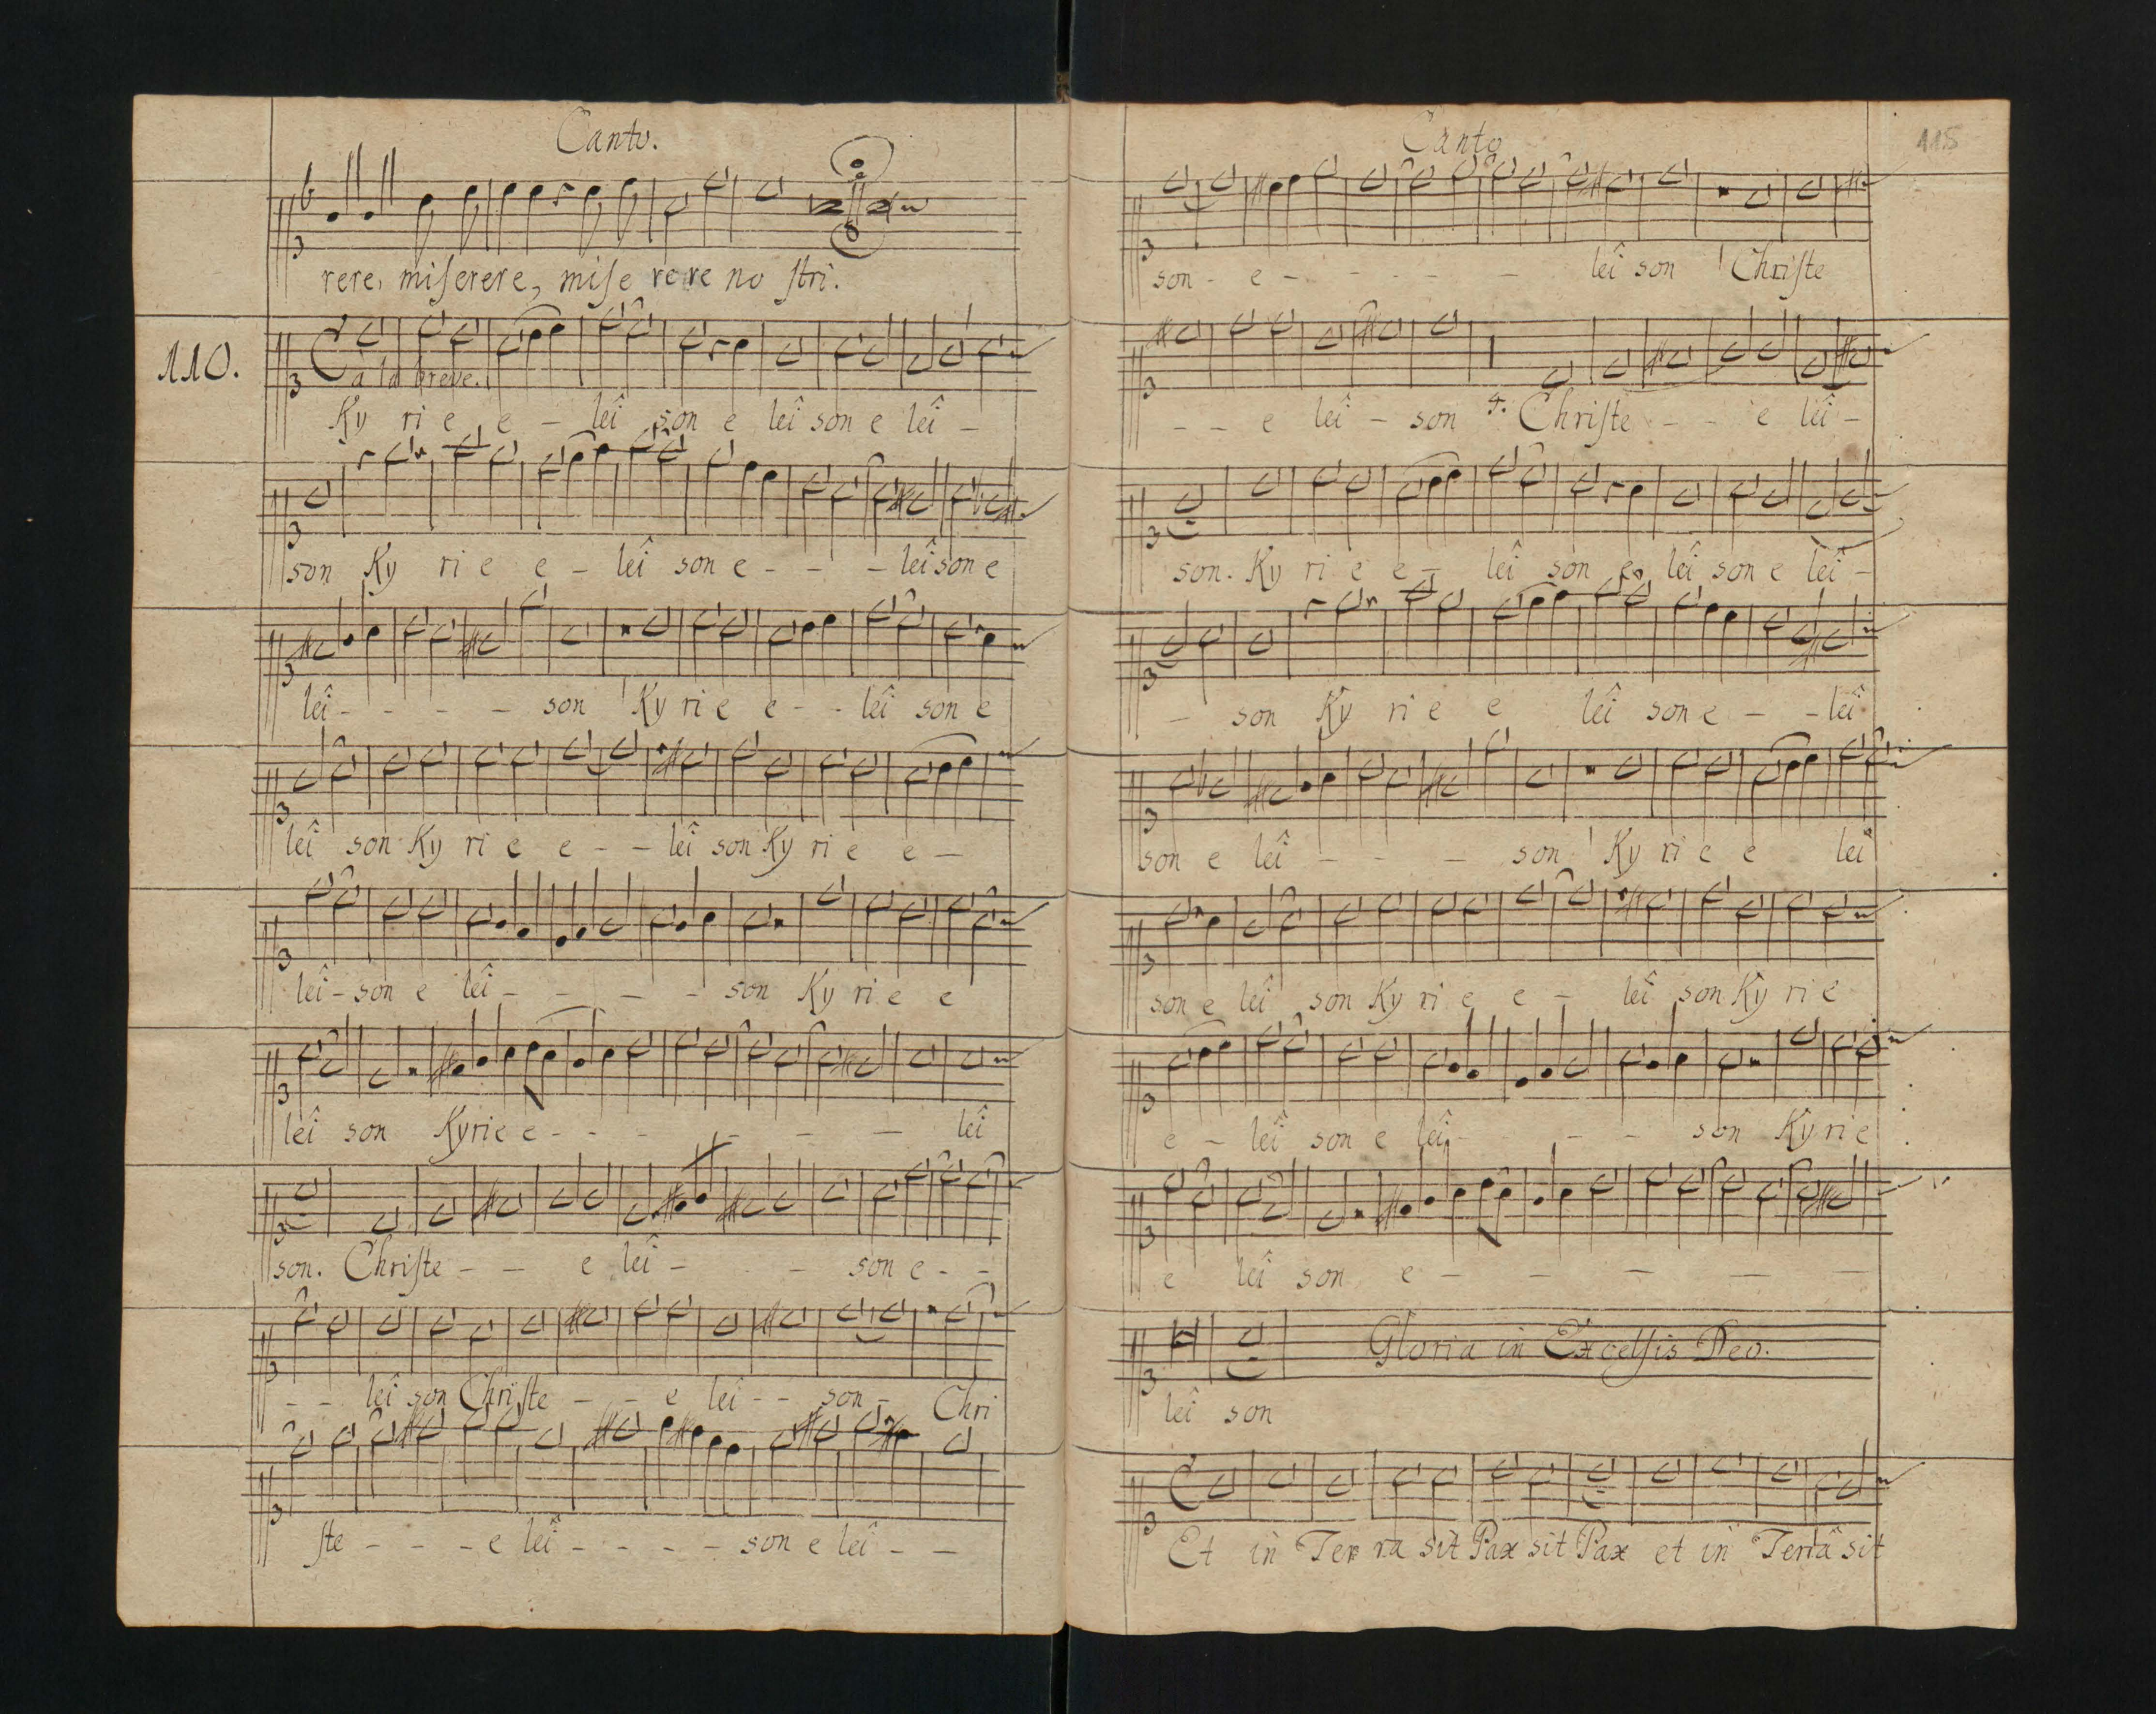 Canto.
rere, miserere, mise rere no stri.
110.
à la breve.
Ky ri e e - lei son e lei son e lei -
son Ky ri e e - lei son e - - - lei son e
lei - - - - son Ky ri e e - - lei son e
lei son Ky ri e e - - lei son Ky ri e e -
lei - son e lei - - - - son Ky ri e e
lei son Kyrie e - - - - - - lei
son. Christe - - e lei - - - son e - -
- - lei son Christe - - e lei - - son - Chri
ste - - - e lei - - - - son e lei - -
Canto
115
son - e - - - - - - lei son Christe
- - e lei - son 4. Christe - - e lei -
son. Ky ri e e - lei son e lei son e lei -
- son Ky ri e e lei son e - - lei
son e lei - - - son Ky ri e e lei
son e lei son Ky ri e e - lei son Ky ri e
e - lei son e lei - - - son Ky ri e
e lei son e - - - - -
Gloria in Excelsis Deo.
lei son
Et in Ter ra sit Pax sit Pax et in Terrâ sit